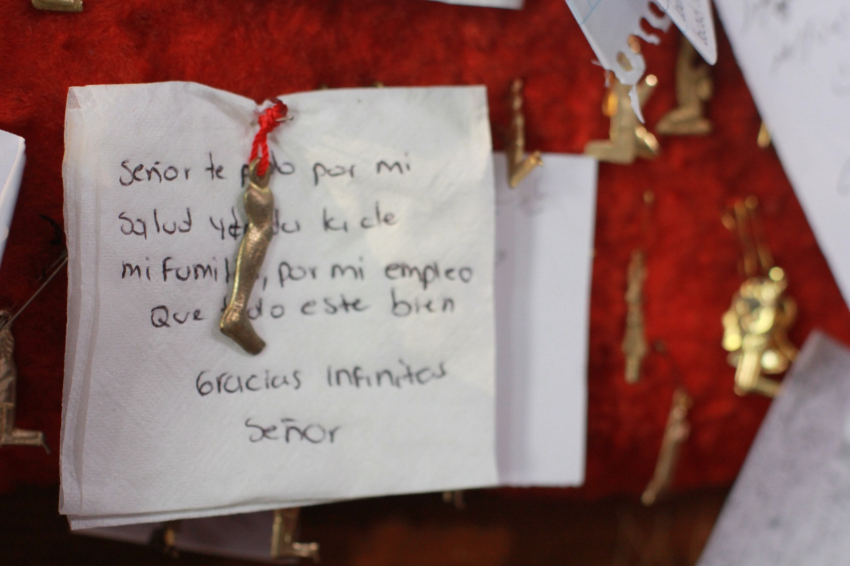 Señor te pido por mi
Salud y toda la de
mi familia, por mi empleo
Que todo este bien
Gracias infinitas
Señor